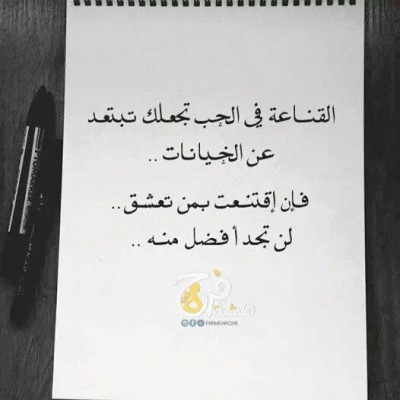 القناعة في الحب تجعلك تبتعد
عن الخيانات ..
فإن إقتنعت بمن تعشق ..
لن تجد أفضل منه ..